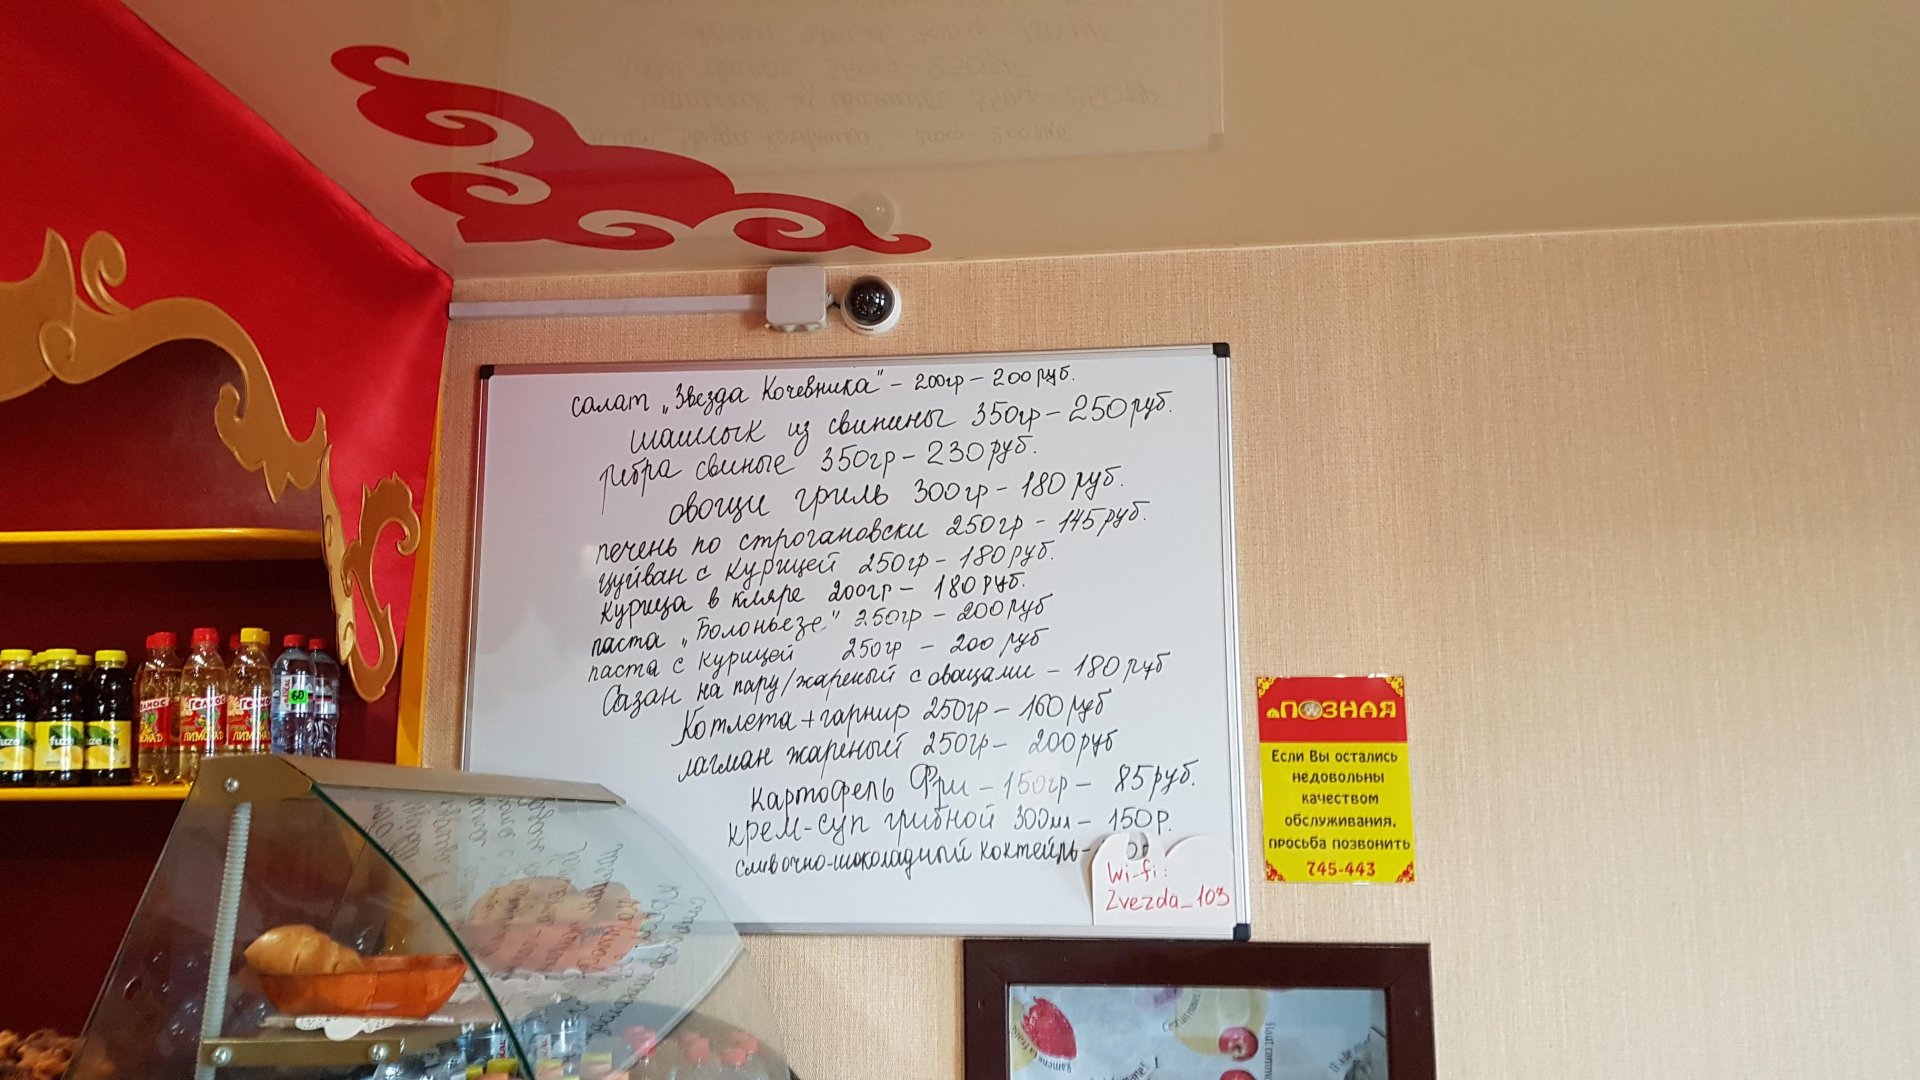 салат „Звезда Кочевника" - 200гр - 200 руб.
шашлык из свинины 350гр - 250 руб.
ребра свиные 350гр - 230 руб.
овощи гриль 300гр - 180 руб.
печень по строгановски 250гр - 145 руб.
цуйван с курицей 250гр - 180 руб.
курица в кляре 200гр - 180 руб.
паста „Болоньезе" 250гр - 200 руб
паста с курицей 250гр - 200 руб
Сазан на пару/жареный с овощами - 180 руб
Котлета + гарнир 250гр - 160 руб
лагман жареный 250гр - 200 руб
картофель Фри - 150гр - 85 руб.
крем-суп грибной 300мл - 150 р.
сливочно-шоколадный коктейль -
Wi-fi:
Zvezda_103
ПОЗНАЯ
Если Вы остались
недовольны
качеством
обслуживания,
просьба позвонить
745-443
Гелиос
ЛИМОНАД
fuze
60